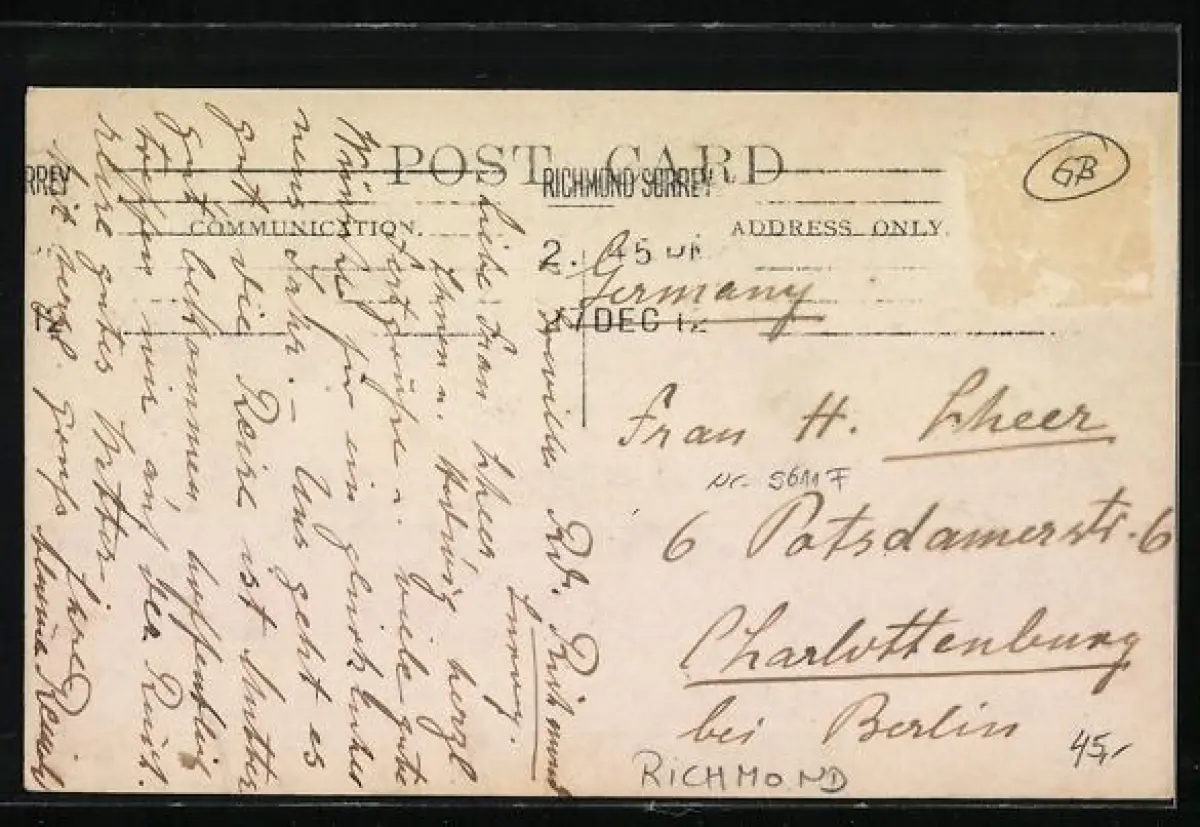 POST CARD
COMMUNICATION.
ADDRESS ONLY.
RREY
RICHMOND SURREY
2. 45 PM
27 DEC 12
GB
Germany
Frau H. Scheer
Nr. 5611 F
6 Potsdamerstr. 6
Charlottenburg
bei Berlin
RICHMOND
45,-
Rd. Richmond
Surrey.
Liebe Frau Scheer
Ihnen u. Hedwig herzl.
Festgrüße u. viele gute
Wünsche für ein glückliches
neues Jahr. – Uns geht es
gut die Reise ist Mutter
gut bekommen, hoffentlich
treffen wir auf der Rückf.
gutes Wetter.
Mit herzl. Ihre